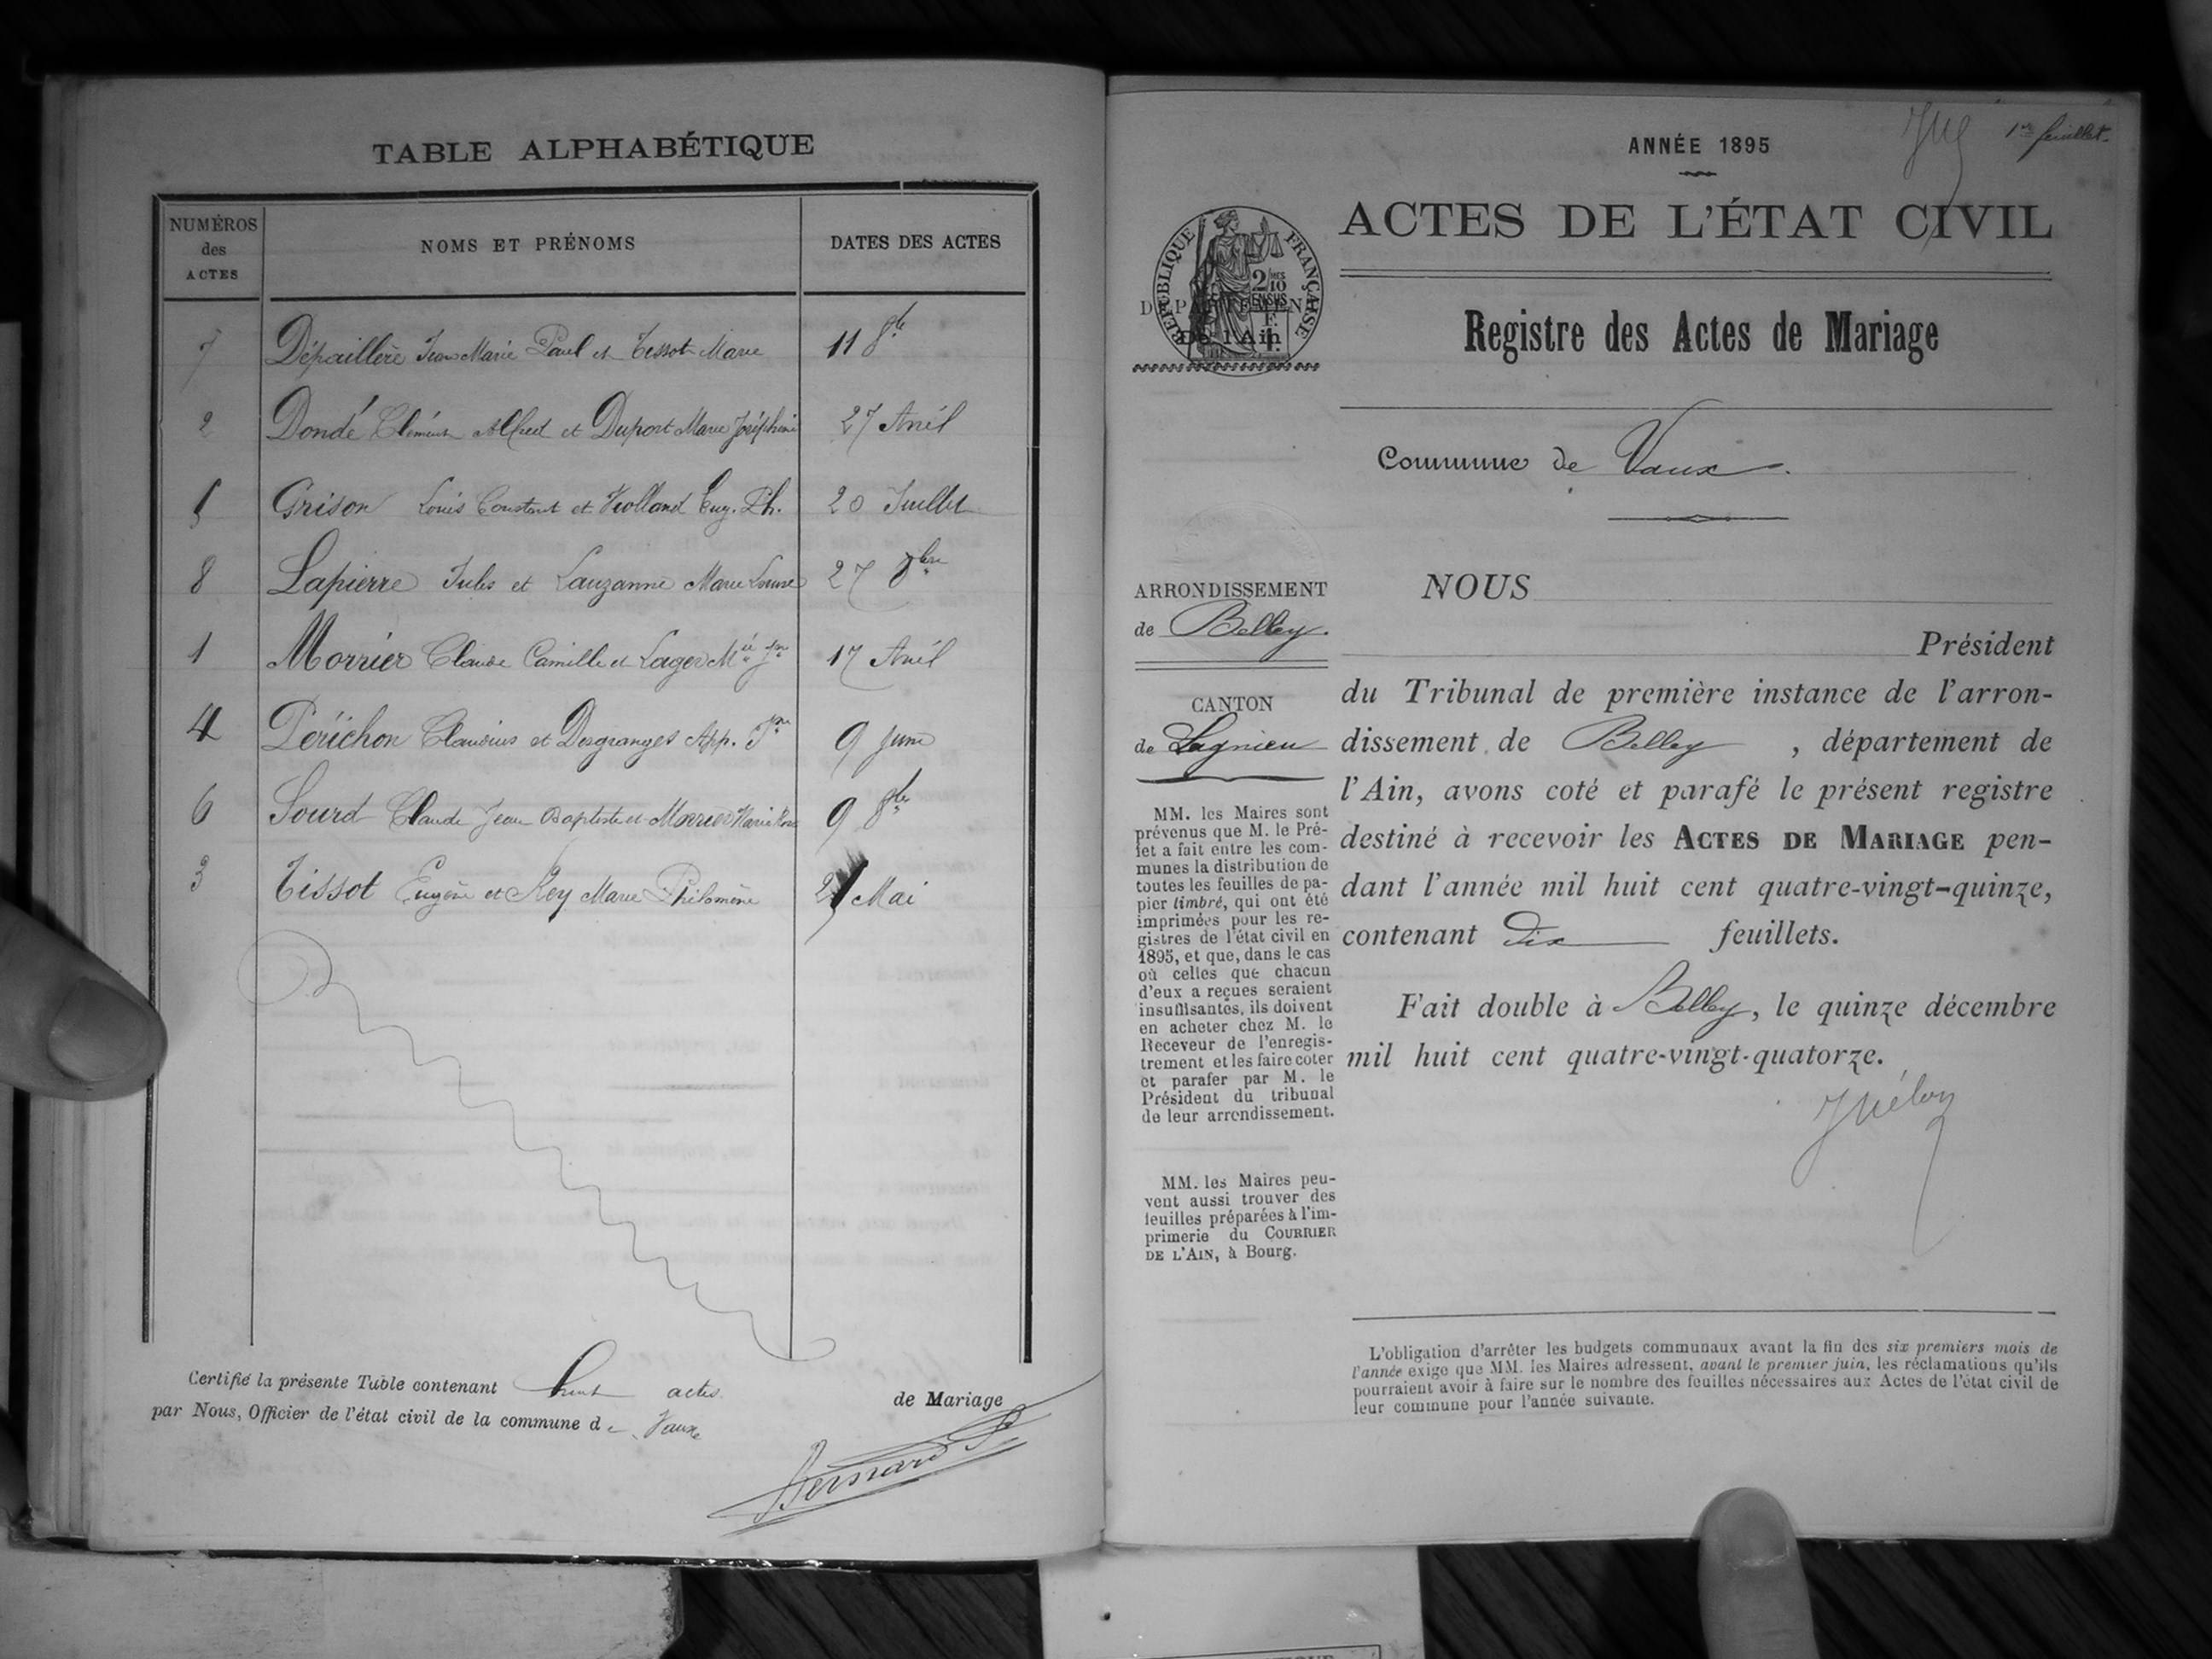 TABLE ALPHABÉTIQUE
NUMÉROS des ACTES
NOMS ET PRÉNOMS
DATES DES ACTES
7 Dépaillère Jean Marie Paul et Tissot Marie 11 8bre
2 Dondé Clément Alfred et Duport Marie Joséphine 27 Avril
5 Grison Louis Constant et Violland Eug. Ph. 20 Juillet
8 Lapierre Jules et Lauzanne Marie Louise 27 Xbre
1 Morrier Claude Camille et Lager Mie Jne 17 Avril
4 Périchon Claudius et Desgranges App. Jne 9 Juin
6 Sourd Claude Jean Baptiste et Morrier Marie Rose 9 8bre
3 Tissot Eugène et Rey Marie Philomène Mai
Certifié la présente Table contenant huit actes de Mariage
par Nous, Officier de l'état civil de la commune de Vaux
Bernard
1er feuillet.
ANNÉE 1895
ACTES DE L'ÉTAT CIVIL
RÉPUBLIQUE FRANÇAISE
2/10 MES EN SUS
DÉPARTEMENT
De l'Ain
Registre des Actes de Mariage
Commune de Vaux.
ARRONDISSEMENT
de Belley.
CANTON
de Lagnieu
MM. les Maires sont
prévenus que M. le Pré-
fet a fait entre les com-
munes la distribution de
toutes les feuilles de pa-
pier timbré, qui ont été
imprimées pour les re-
gistres de l'état civil en
1895, et que, dans le cas
où celles que chacun
d'eux a reçues seraient
insuffisantes, ils doivent
en acheter chez M. le
Receveur de l'enregis-
trement et les faire coter
et parafer par M. le
Président du tribunal
de leur arrondissement.
MM. les Maires peu-
vent aussi trouver des
feuilles préparées à l'im-
primerie du COURRIER
DE L'AIN, à Bourg.
NOUS
Président
du Tribunal de première instance de l'arron-
dissement de Belley, département de
l'Ain, avons coté et parafé le présent registre
destiné à recevoir les ACTES DE MARIAGE pen-
dant l'année mil huit cent quatre-vingt-quinze,
contenant Dix feuillets.
Fait double à Belley, le quinze décembre
mil huit cent quatre-vingt-quatorze.
L'obligation d'arrêter les budgets communaux avant la fin des six premiers mois de
l'année exige que MM. les Maires adressent, avant le premier juin, les réclamations qu'ils
pourraient avoir à faire sur le nombre des feuilles nécessaires aux Actes de l'état civil de
leur commune pour l'année suivante.